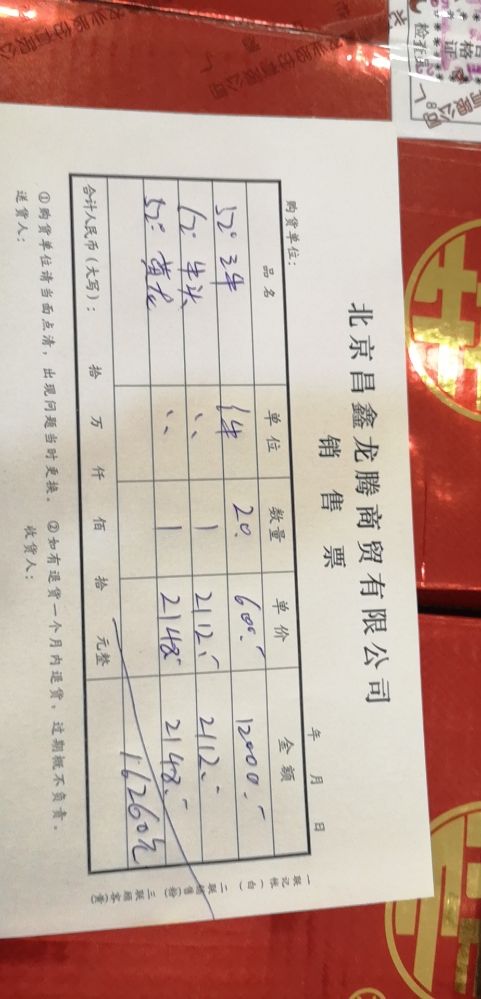 北京昌鑫龙腾商贸有限公司
销售票
购货单位： 年 月 日
品名 单位 数量 单价 金额
52° 件 20. 600.- 12000.-
牛头 〃 1 2112.- 2112.-
52° 黄龙 〃 1 2148.- 2148.-
16260元
合计人民币（大写）： 拾 万 仟 佰 拾 元整
①购货单位请当面点清，出现问题当时更换。 ②如有退货一个月内退货，过期概不负责。
送货人： 收货人：
一联记帐（白） 二联销售（粉） 三联顾客（黄）
农业股份有限公司
合格证
检查员
有限公司